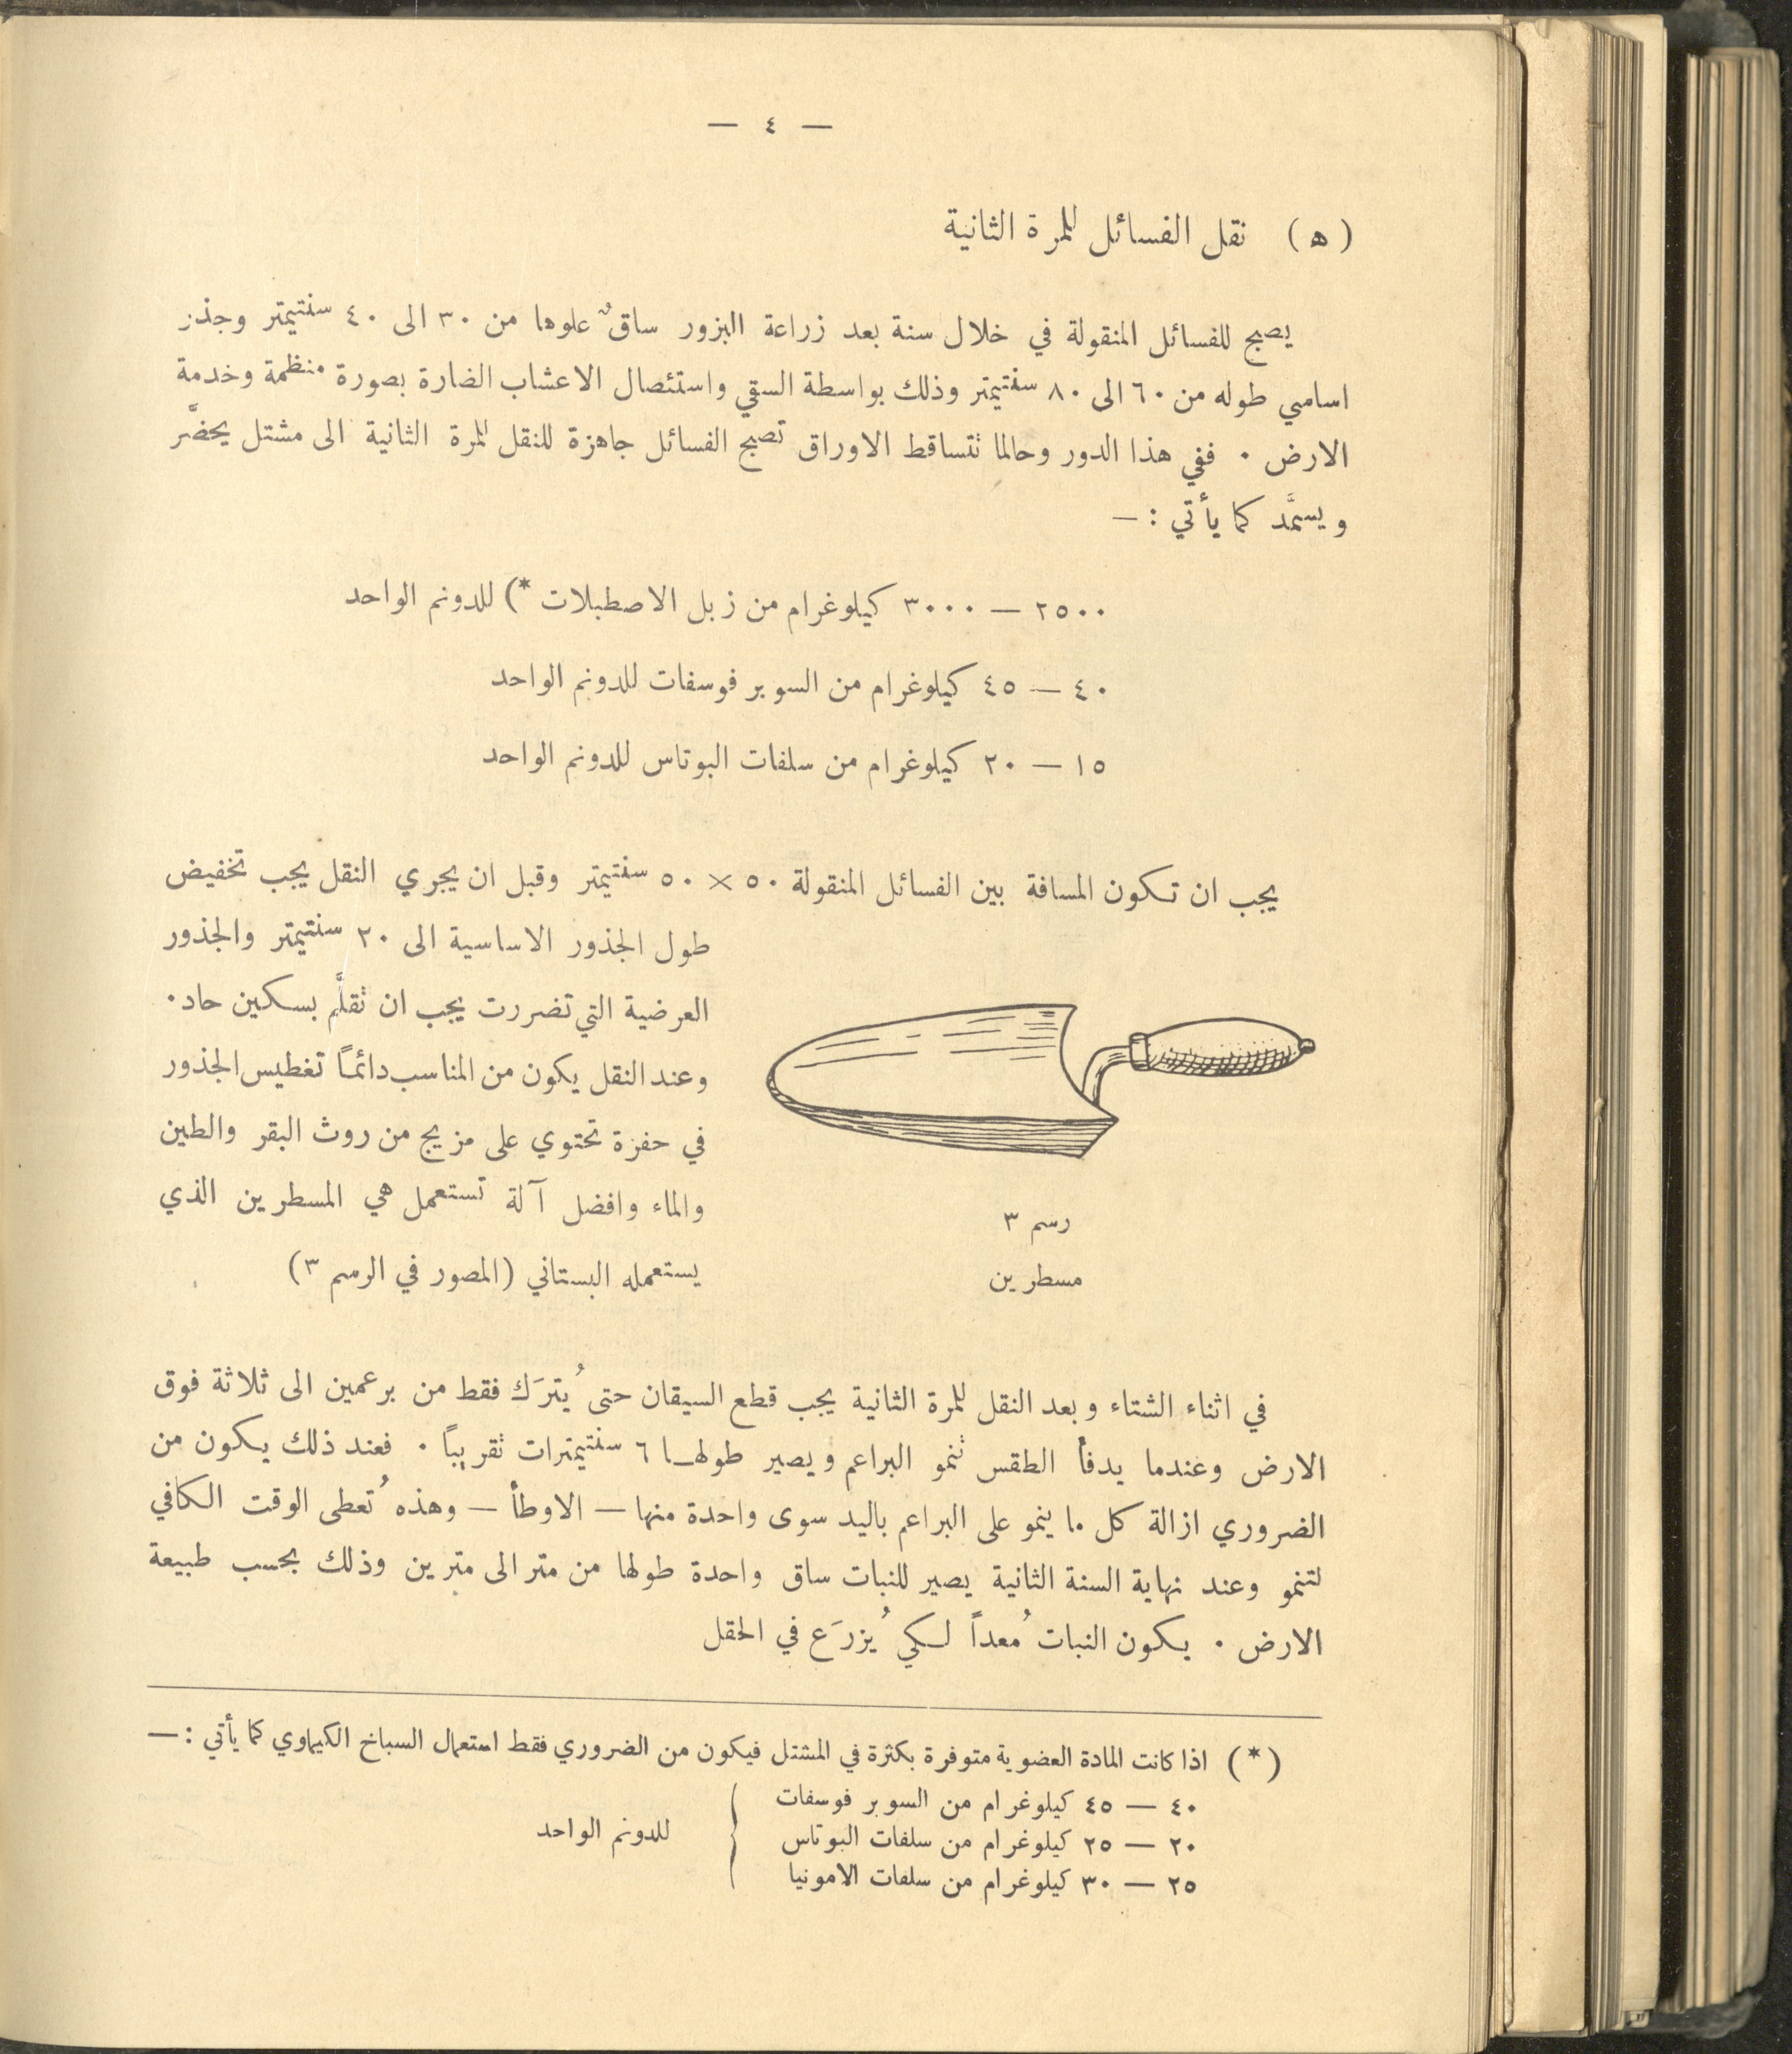 — ٤ —
( ه ) نقل الفسائل للمرة الثانية
يصبح للفسائل المنقولة في خلال سنة بعد زراعة البزور ساقٌ علوها من ٣٠ الى ٤٠ سنتيمتر وجذر
اساسي طوله من ٦٠ الى ٨٠ سنتيمتر وذلك بواسطة السقي واستئصال الاعشاب الضارة بصورة منظمة وخدمة
الارض . ففي هذا الدور وحالما تتساقط الاوراق تصبح الفسائل جاهزة للنقل للمرة الثانية الى مشتل يحضَّر
ويسمَّد كما يأتي : —
٢٥٠٠ — ٣٠٠٠ كيلوغرام من زبل الاصطبلات *) للدونم الواحد
٤٠ — ٤٥ كيلوغرام من السوبر فوسفات للدونم الواحد
١٥ — ٢٠ كيلوغرام من سلفات البوتاس للدونم الواحد
يجب ان تكون المسافة بين الفسائل المنقولة ٥٠ × ٥٠ سنتيمتر وقبل ان يجري النقل يجب تخفيض
طول الجذور الاساسية الى ٢٠ سنتيمتر والجذور
العرضية التي تضررت يجب ان تقلَّم بسكين حاد .
وعند النقل يكون من المناسب دائمًا تغطيس الجذور
في حفرة تحتوي على مزيج من روث البقر والطين
والماء وافضل آلة تستعمل هي المسطرين الذي
يستعمله البستاني (المصور في الرسم ٣)
رسم ٣
مسطرين
في اثناء الشتاء وبعد النقل للمرة الثانية يجب قطع السيقان حتى يُترَك فقط من برعمين الى ثلاثة فوق
الارض وعندما يدفأ الطقس تنمو البراعم ويصير طولها ٦ سنتيمترات تقريبًا . فعند ذلك يكون من
الضروري ازالة كل ما ينمو على البراعم باليد سوى واحدة منها — الاوطأ — وهذه تُعطى الوقت الكافي
لتنمو وعند نهاية السنة الثانية يصير للنبات ساق واحدة طولها من متر الى مترين وذلك بحسب طبيعة
الارض . يكون النبات مُعداً لكي يُزرَع في الحقل
( * ) اذا كانت المادة العضوية متوفرة بكثرة في المشتل فيكون من الضروري فقط استعمال السباخ الكيماوي كما يأتي : —
٤٠ — ٤٥ كيلوغرام من السوبر فوسفات
٢٠ — ٢٥ كيلوغرام من سلفات البوتاس
٢٥ — ٣٠ كيلوغرام من سلفات الامونيا
للدونم الواحد